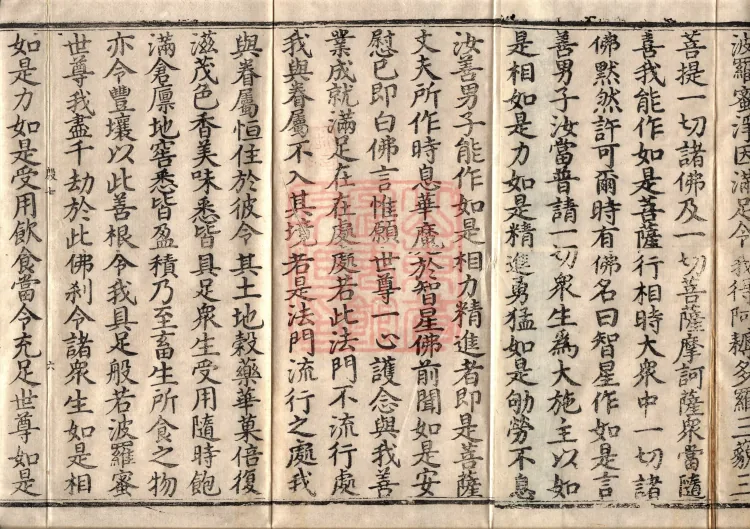 波羅蜜淨因滿足令我得阿耨多羅三藐三
菩提一切諸佛及一切菩薩摩訶薩衆當隨
善我能作如是菩薩行相時大衆中一切諸
佛黙然許可爾時有佛名曰智星作如是言
善男子汝當普請一切衆生爲大施主以如
是相如是力如是精進勇猛如是劬勞不息
汝善男子能作如是相力精進者即是菩薩
丈夫所作時息華魔於智星佛前聞如是安
慰已即白佛言惟願世尊一心護念與我善
業成就滿足在在處處若此法門不流行處
我與眷屬不入其境若是法門流行之處我
與眷屬恒住於彼令其土地榖藥華菓倍復
滋茂色香美味悉皆具足衆生受用隨時飽
滿倉廪地窖悉皆盈積乃至畜生所食之物
亦令豐壤以此善根令我具足般若波羅蜜
世尊我盡千劫於此佛刹令諸衆生如是相
如是力如是受用飲食當令充足世尊如是
六